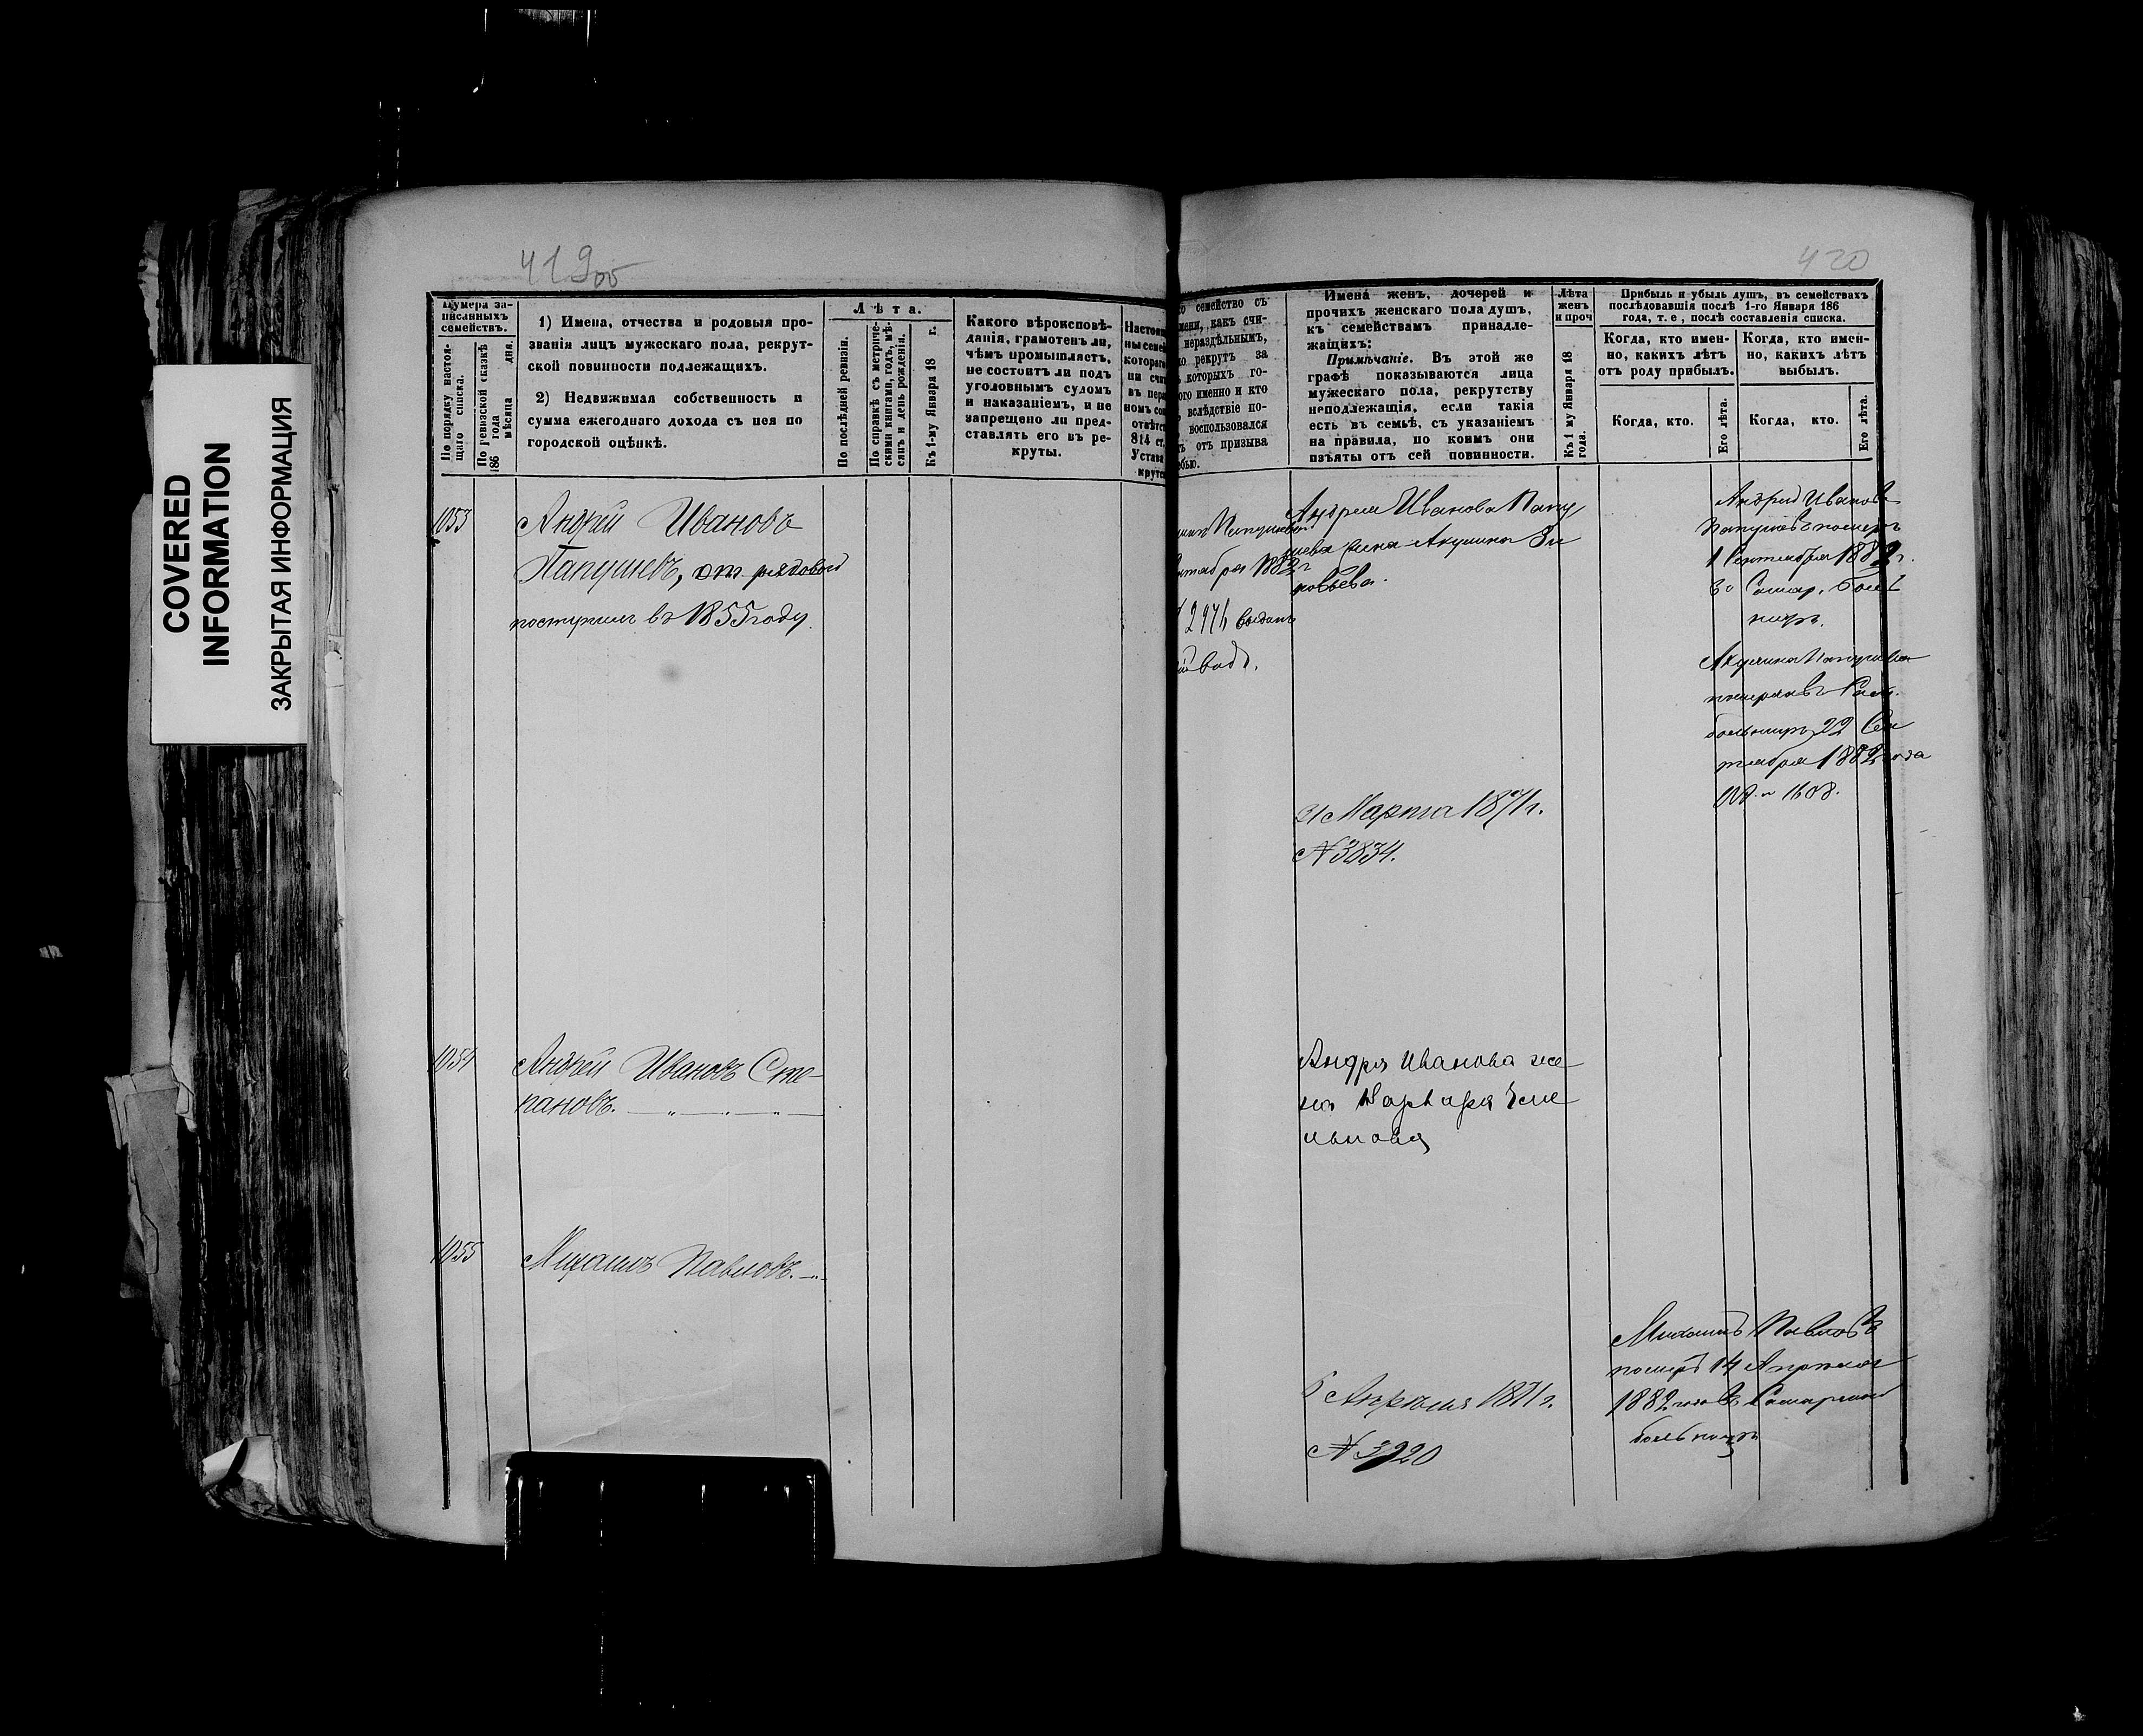 COVERED
INFORMATION
ЗАКРЫТАЯ ИНФОРМАЦИЯ
419об
Нумера за-
писанныхъ
семействъ.
По порядку настоя-
щаго списка.
По ревизской сказкѣ
186 года
мѣсяца дня.
1) Имена, отчества и родовыя про-
званія лицъ мужескаго пола, рекрут-
ской повинности подлежащихъ.
2) Недвижимая собственность и
сумма ежегоднаго дохода съ нея по
городской оцѣнкѣ.
Лѣта.
По послѣдней ревизіи.
По справкѣ съ метриче-
скими книгами, годъ, мѣ-
сяцъ и день рожденія.
Къ 1-му Января 18 г.
Какого вѣроисповѣ-
данія, грамотенъ ли,
чѣмъ промышляетъ,
не состоитъ ли подъ
уголовнымъ судомъ
и наказаніемъ, и не
запрещено ли пред-
ставлять его въ ре-
круты.
1053
Андрей Ивановъ
Папушевъ, от рядового
поступил въ 1855 году.
1054
Андрей Ивановъ Сте-
пановъ.
1055
Михаилъ Павловъ.
420
семейство съ
какъ счи-
нераздѣльнымъ,
рекрутъ за
которыхъ го-
именно и кто
вслѣдствіе по-
воспользовался
отъ призыва
Имена женъ, дочерей и
прочихъ женскаго пола душъ,
къ семействамъ принадле-
жащихъ:
Примѣчаніе. Въ этой же
графѣ показываются лица
мужескаго пола, рекрутству
неподлежащія, если такія
есть въ семьѣ, съ указаніемъ
на правила, по коимъ они
изъяты отъ сей повинности.
Лѣта
женъ
и проч
Къ 1 му Января 18
года.
Прибыль и убыль душъ, въ семействахъ
послѣдовавшія послѣ 1-го Января 186
года, т. е, послѣ составленія списка.
Когда, кто имен-
но, какихъ лѣтъ
отъ роду прибылъ.
Когда, кто имен-
но, какихъ лѣтъ
выбылъ.
Когда, кто.
Его лѣта.
Когда, кто.
Его лѣта.
1882 г
2974 выданъ
Андрея Иванова Папу
шева жена Акулина Зи
новьева.
Андрей Ивановъ
Папушевъ померъ
1 Сентября 1882 г.
въ Самар. боль
ницѣ.
Акулина Папушева
померла въ Сам.
больницѣ 22 Сен
тября 1882 года
1608.
31 Марта 1871 г.
№ 3834.
Андрея Иванова же
на Варвара Еме
льянова
Михаилъ Павловъ
померъ 14 Апрѣля
1882 года въ Самарской
больницѣ
5 Апрѣля 1871 г.
№ 3920